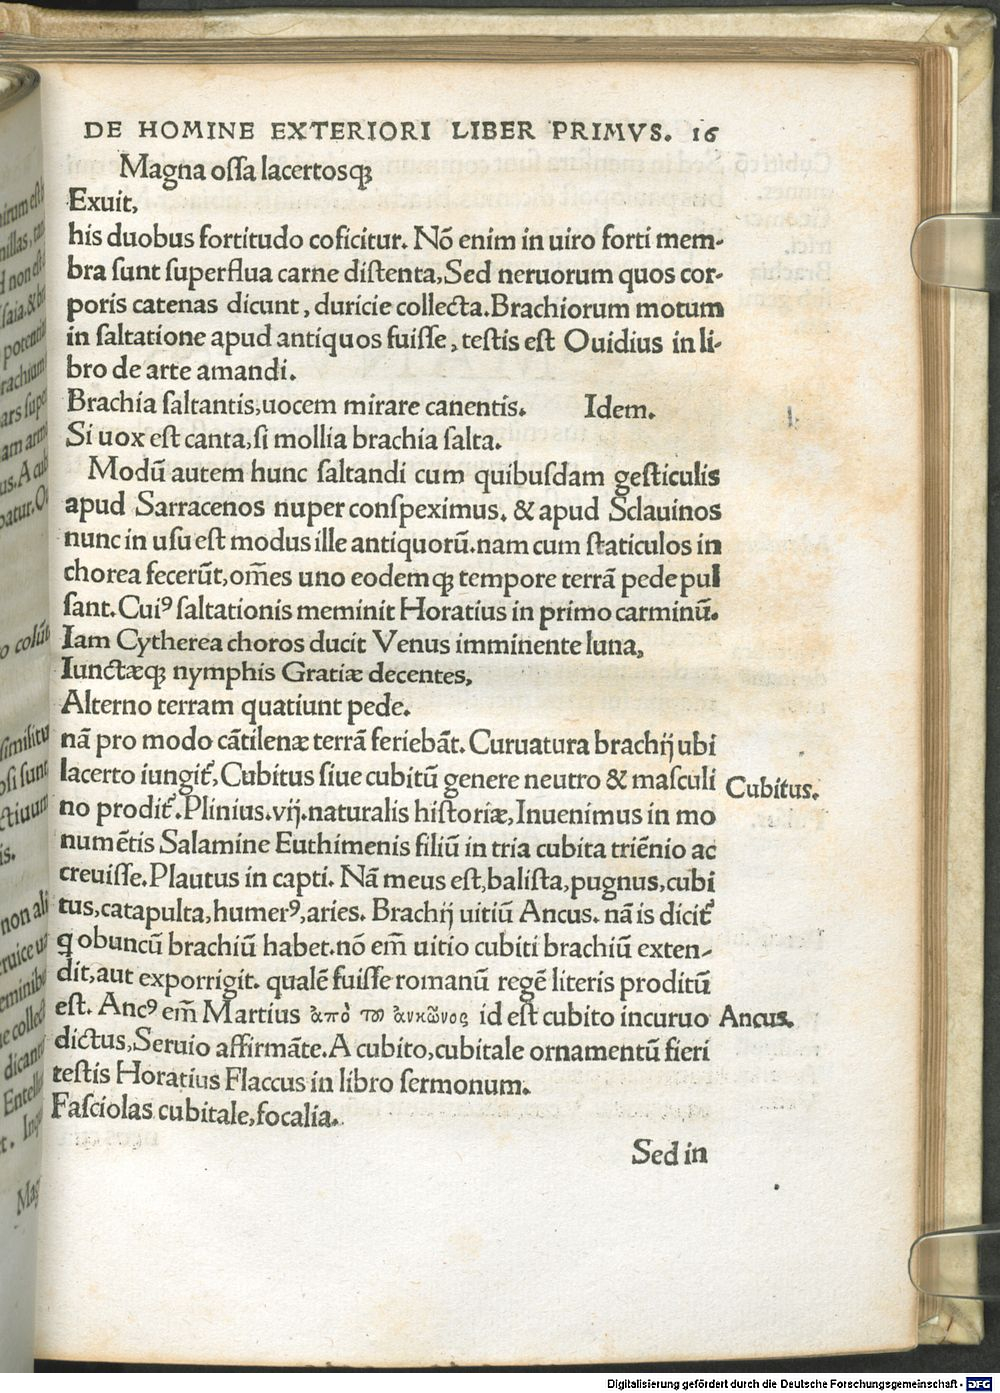 DE HOMINE EXTERIORI LIBER PRIMVS. 16
Magna ossa lacertosqꝫ
Exuit,
his duobus fortitudo cōficitur. Nō enim in uiro forti mem-
bra sunt superflua carne distenta, Sed neruorum quos cor-
poris catenas dicunt, duricie collecta. Brachiorum motum
in saltatione apud antiquos fuisse, testis est Ouidius in li-
bro de arte amandi.
Brachia saltantis, uocem mirare canentis. Idem.
Si uox est canta, si mollia brachia salta.
Modū autem hunc saltandi cum quibusdam gesticulis
apud Sarracenos nuper conspeximus. & apud Sclauinos
nunc in usu est modus ille antiquorū. nam cum staticulos in
chorea fecerūt, om̄es uno eodemqꝫ tempore terrā pede pul
sant. Cuiꝰ saltationis meminit Horatius in primo carminū.
Iam Cytherea choros ducit Venus imminente luna,
Iunctæqꝫ nymphis Gratiæ decentes,
Alterno terram quatiunt pede.
nā pro modo cātilenæ terrā feriebāt. Curuatura brachij ubi
lacerto iungit᷑, Cubitus siue cubitū genere neutro & masculi
no prodit᷑. Plinius. vij. naturalis historiæ, Inuenimus in mo
numētis Salamine Euthimenis filiū in tria cubita triēnio ac
creuisse. Plautus in capti. Nā meus est, balista, pugnus, cubi
tus, catapulta, humerꝰ, aries. Brachij uitiū Ancus. nā is dicit᷑
q obuncū brachiū habet. nō em̄ uitio cubiti brachiū exten-
dit, aut exporrigit. qualē fuisse romanū regē literis proditū
est. Ancꝰ em̄ Martius ἀπὸ τοῦ ἀνκῶνος id est cubito incuruo
dictus, Seruio affirmāte. A cubito, cubitale ornamentū fieri
testis Horatius Flaccus in libro sermonum.
Fasciolas cubitale, focalia.
Sed in
Cubitus.
Ancus.
Digitalisierung gefördert durch die Deutsche Forschungsgemeinschaft - DFG